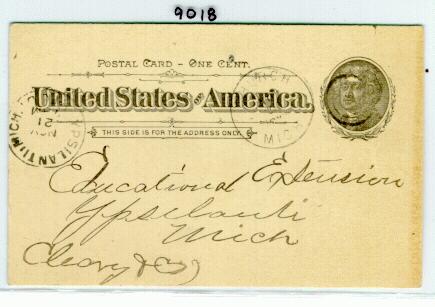 9018
POSTAL CARD - ONE CENT.
United States of America.
THIS SIDE IS FOR THE ADDRESS ONLY.
YPSILANTI MICH.
NOV
21
MICH
MICH
Educational Extension
Ypsilanti
Mich
Cleary